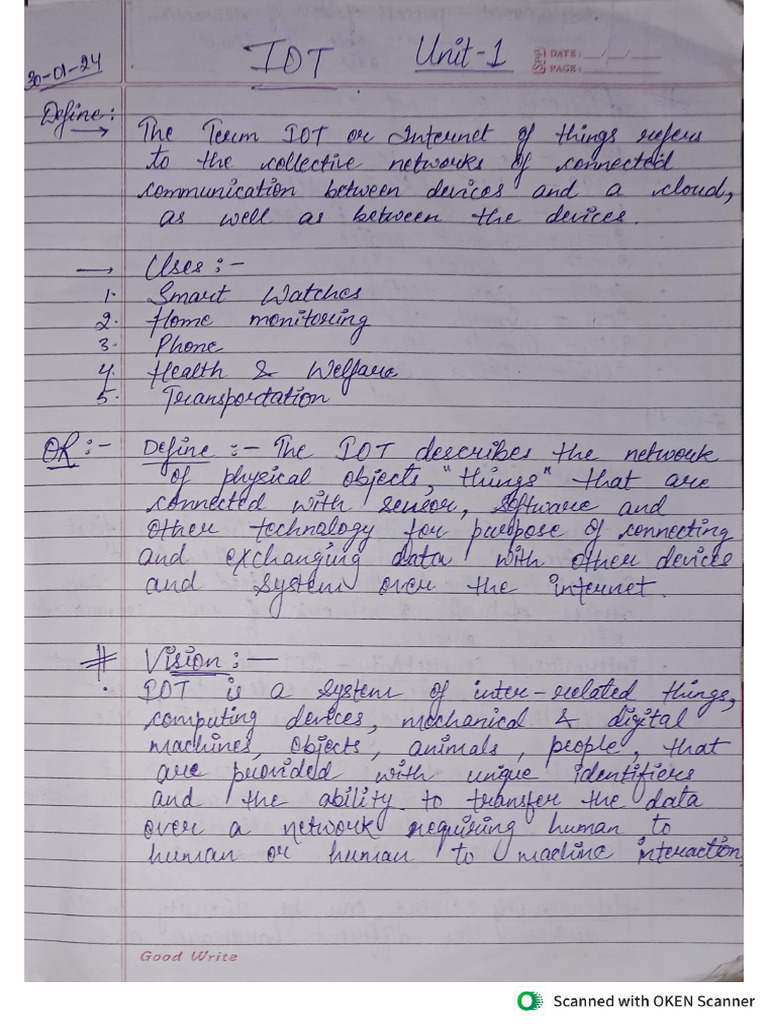 30-01-24
IOT Unit-1
DATE: __/__/__
PAGE: ______
Define: →
The Term IOT or Internet of things refers
to the collective networks of connected
communication between devices and a cloud,
as well as between the devices.
→ Uses :-
1. Smart Watches
2. Home monitoring
3. Phone
4. Health & Welfare
5. Transportation
OR :- Define :- The IOT describes the network
of physical objects, "things" that are
connected with sensor, software and
other technology for purpose of connecting
and exchanging data with other devices
and system over the internet.
# Vision :—
. IOT is a system of inter-related things,
computing devices, mechanical & digital
machines, objects, animals, people, that
are provided with unique identifiers
and the ability to transfer the data
over a network requiring human to
human or human to machine interaction.
Good Write
Scanned with OKEN Scanner